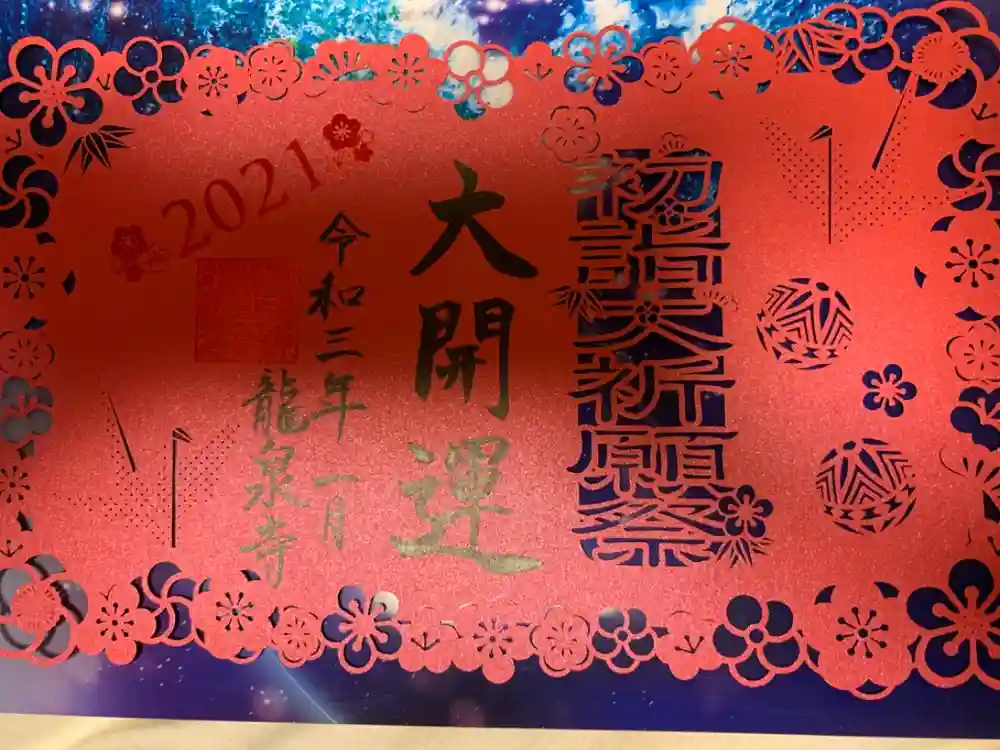 初詣大祈願祭
大開運
令和三年一月
龍泉寺
2021